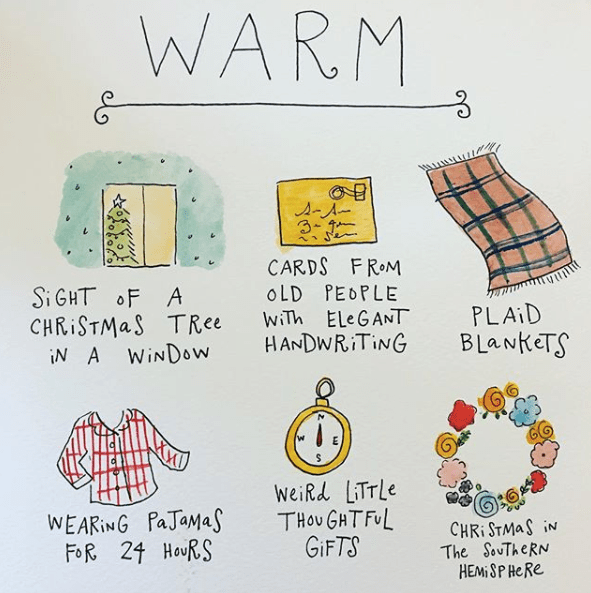 WARM
SIGHT OF A
CHRISTMAS TREE
IN A WINDOW
CARDS FROM
OLD PEOPLE
WITH ELEGANT
HANDWRITING
PLAID
BLANKETS
WEARING PAJAMAS
FOR 24 HOURS
N
W E
S
WEIRD LITTLE
THOUGHTFUL
GIFTS
CHRISTMAS IN
THE SOUTHERN
HEMISPHERE